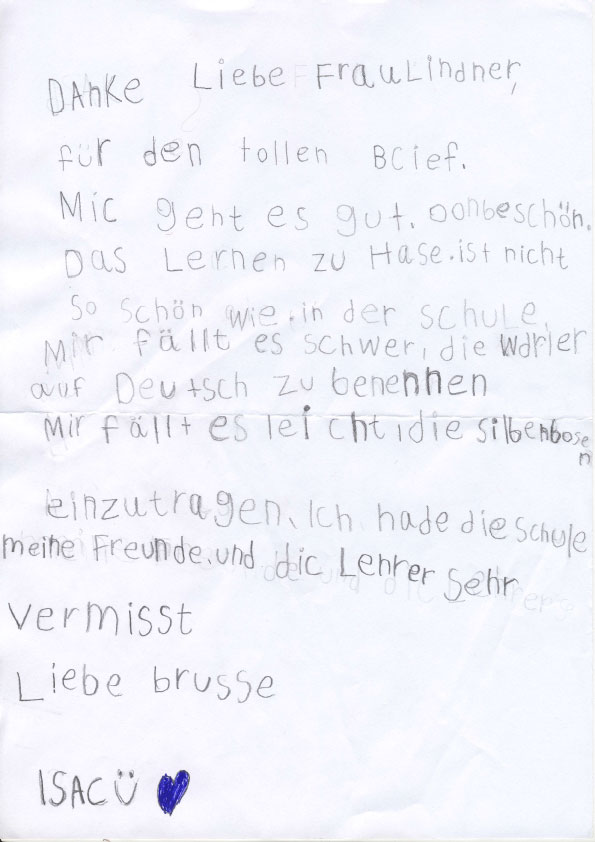 Danke Liebe Frau Lindner,
für den tollen Bcief.
Mic geht es gut. Donbeschön.
Das Lernen zu Hase. ist nicht
So schön wie. in der schule.
Mir fällt es schwer, die Wörter
auf Deutsch zu benennen
Mir fällt es leicht, die Silbenbosen
einzutragen. Ich hade die schule
meine Freunde. und dic Lehrer Sehr
vermisst
Liebe brusse
ISAC Ü